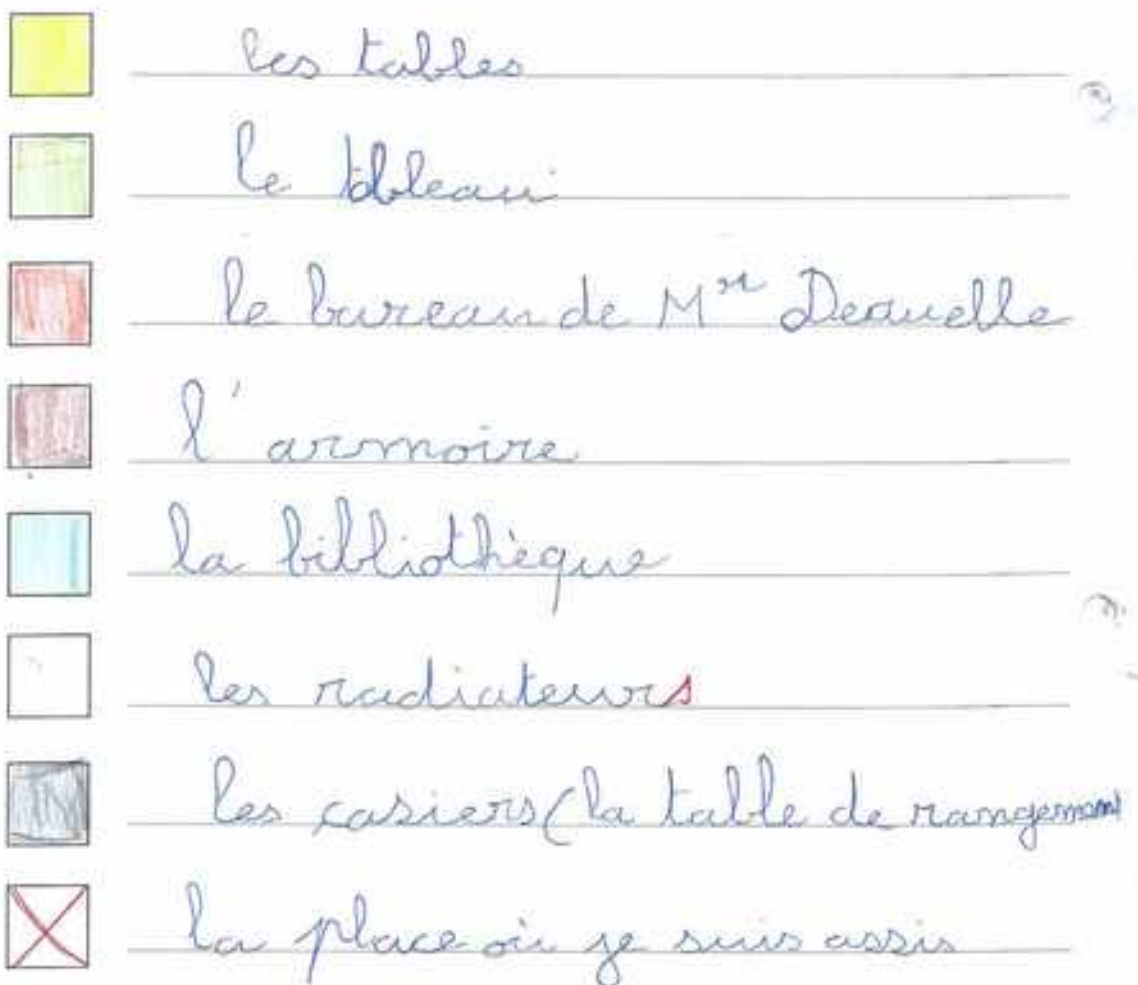 les tables
le tbleau
le bureau de Mr Deruelle
l'armoire
la bibliothèque
les radiateurs
les casiers (la table de rangement
la place où je suis assis